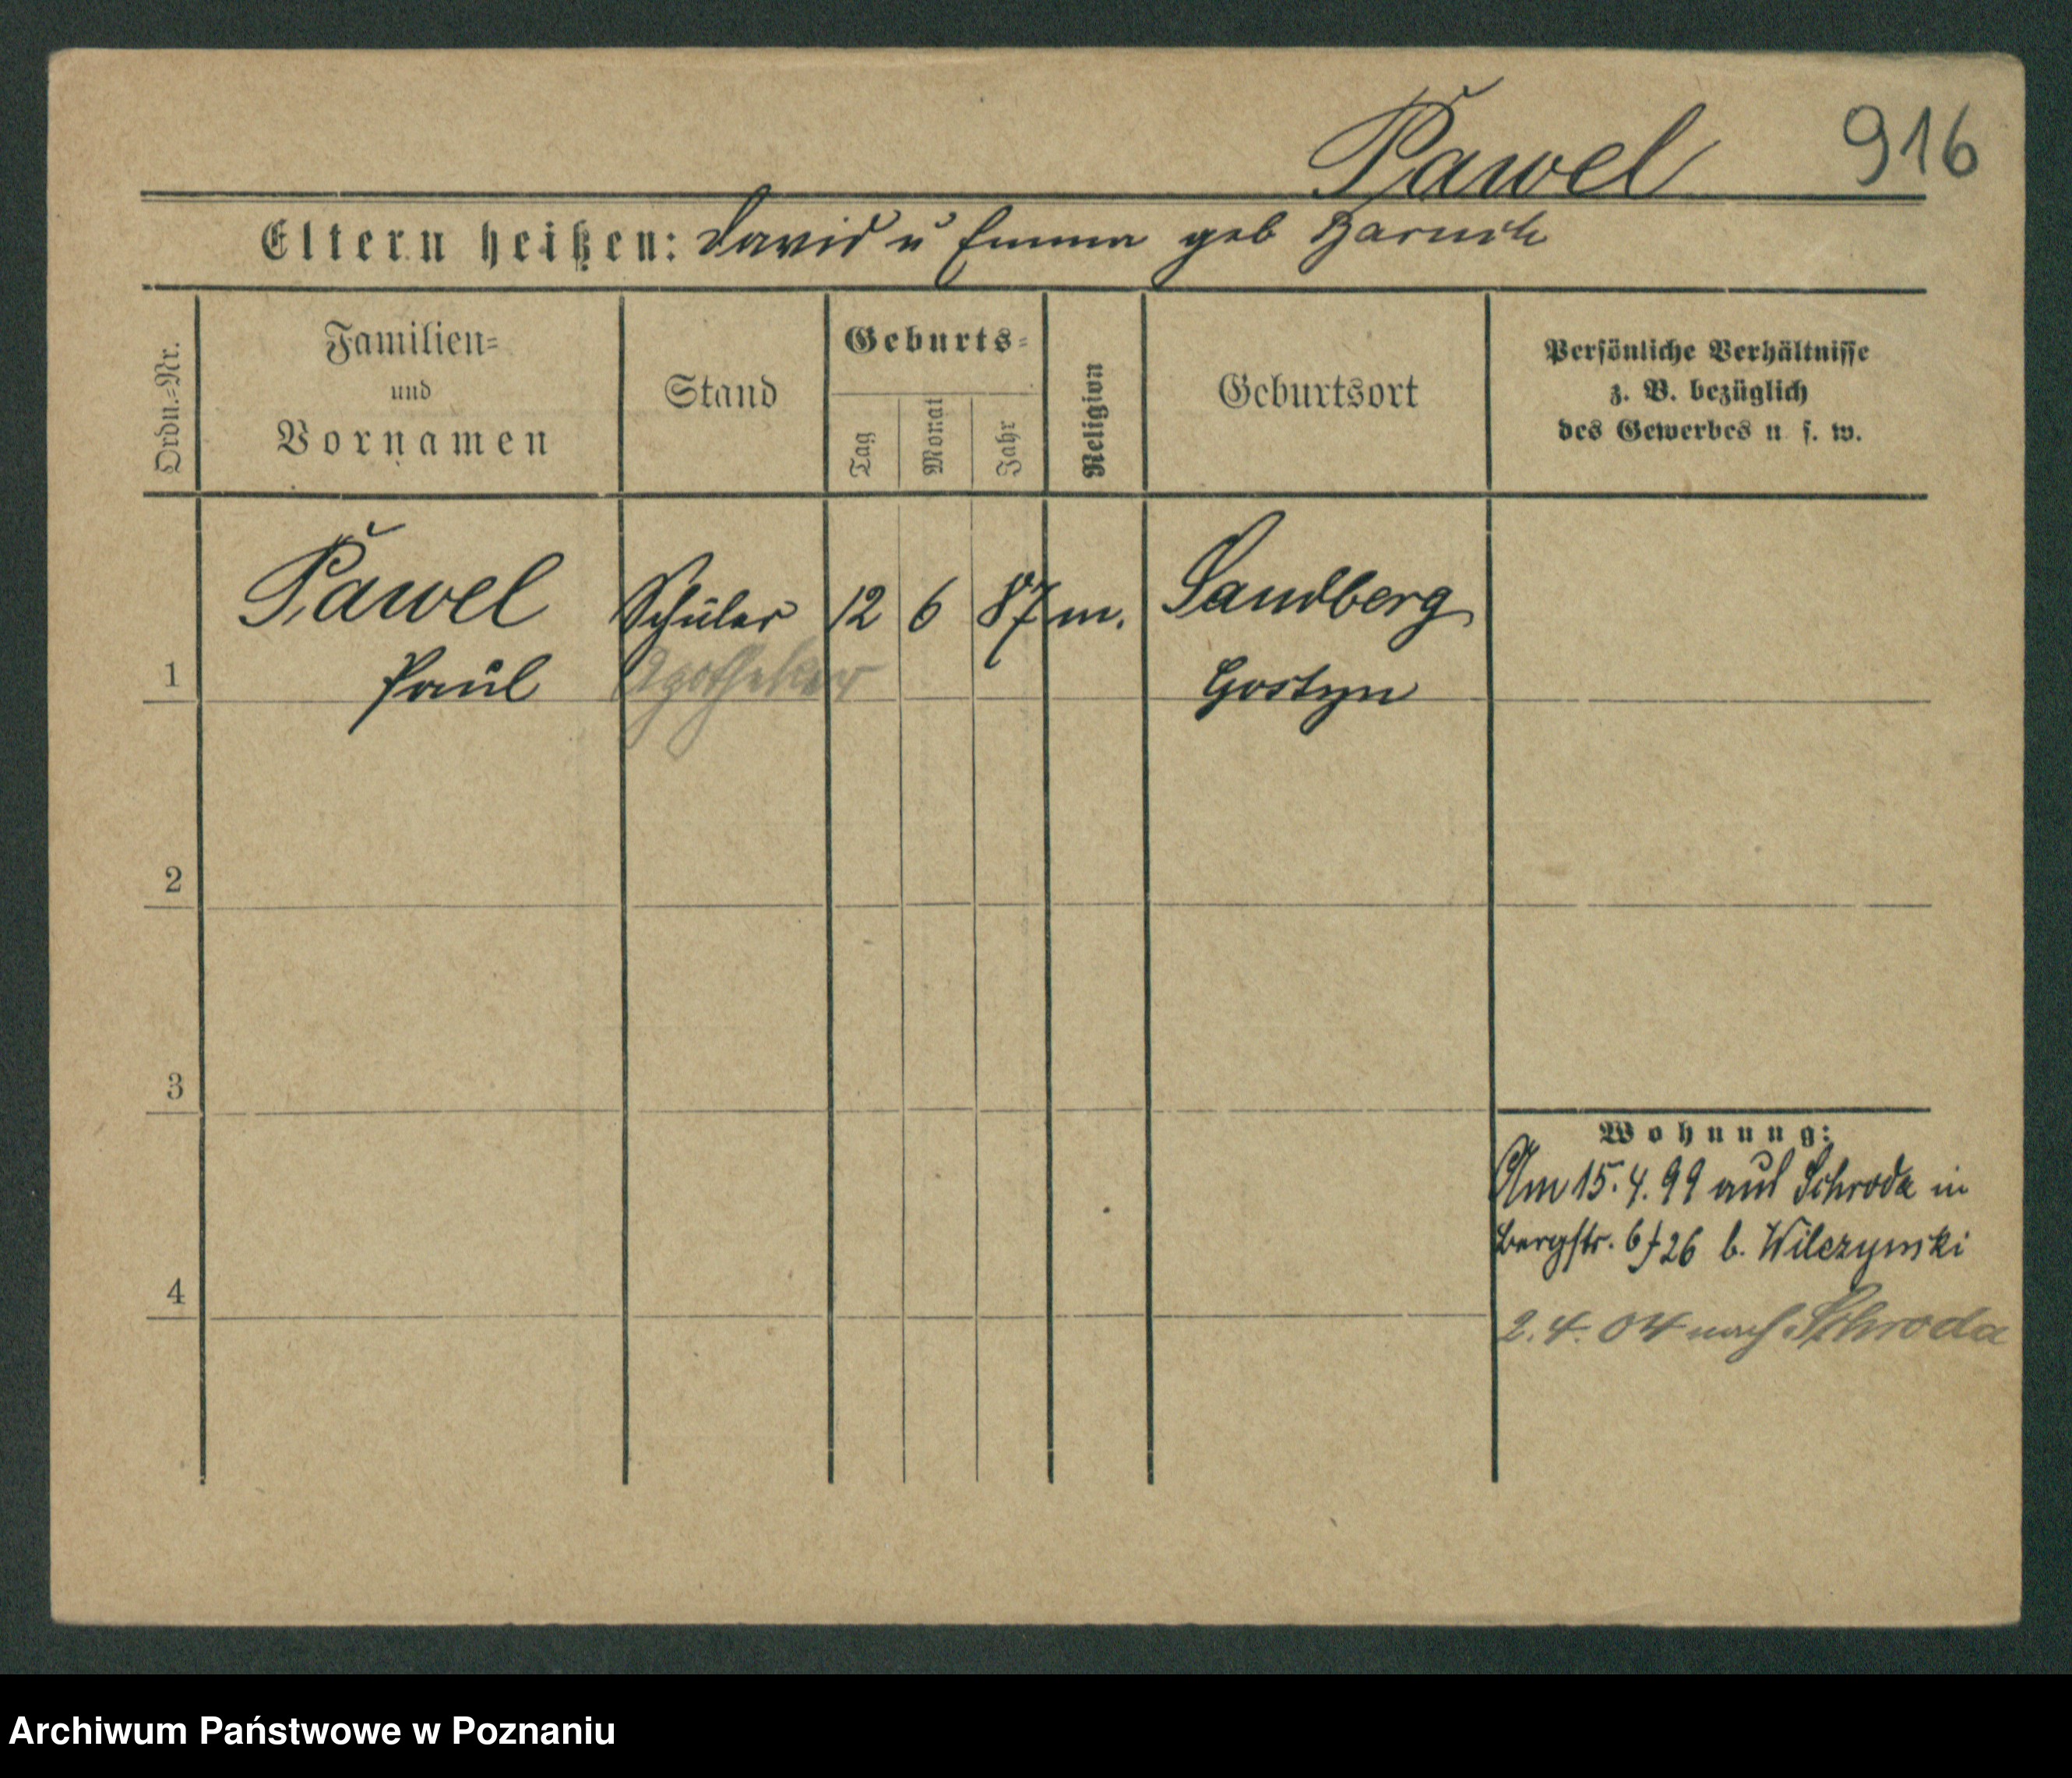 Pawel 916
Eltern heißen: David u Emma geb
Ordn.-Nr.
Familien=
und
Vornamen
Stand
Geburts=
Tag
Monat
Jahr
Religion
Geburtsort
Persönliche Verhältnisse
z. B. bezüglich
des Gewerbes u. s. w.
1 Pawel Schüler 12 6 87 m. Sandberg
Paul Apotheker Gostyn
2
3
Wohnung:
Am 15.4.99 aus Schroda in
Bergstr. 6/26 b. Wilczynski
4
2.4.04 nach Schroda
Archiwum Państwowe w Poznaniu